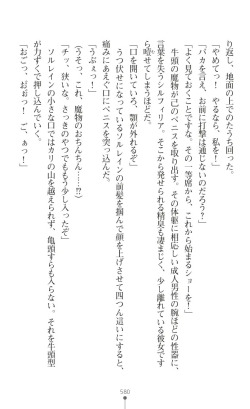 り返し、地面の上でのたうち回った。
「やめてっ！　やるなら、私を！」
「バカを言え、お前に打撃は通じないのだろう？
「よく見ておくことです、その一等席から、これから始まるショーを！」
　牛頭の魔物が己のペニスを取り出す。その体躯に相応しい成人男性の腕ほどの性器に、
言葉を失うシルフィリア。そこから発せられる精臭も凄まじく、少し離れている彼女です
ら噎せてしまうほどだ。
「口を開いていろ、顎が外れるぞ」
　うつ伏せになっているソルレインの前髪を掴んで顔を上げさせて四つん這いにすると、
痛みにあえぐ口にペニスを突っ込んだ。
「うぶぇっ！」
（うそっ、これ、魔物のおちんちん……!?）
「チッ、狭いな、さっきのやつでももう少し入ったぞ」
　ソルレインの小さな口ではカリの山を越えられず、亀頭すらも入らない。それを牛頭型
が力ずくで押し込んでいく。
「おごっ、おぉっ！　ご、ぁっ！」
580